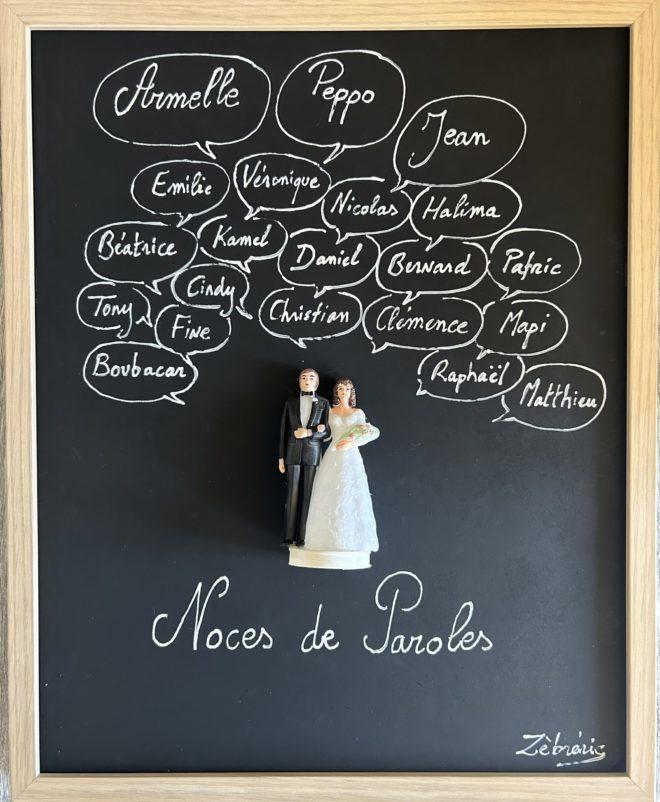 Armelle
Peppo
Jean
Emilie
Véronique
Nicolas
Halima
Béatrice
Kamel
Daniel
Bernard
Patric
Cindy
Tony
Fine
Christian
Clémence
Mapi
Boubacar
Raphaël
Matthieu
Noces de Paroles
Zèbréric